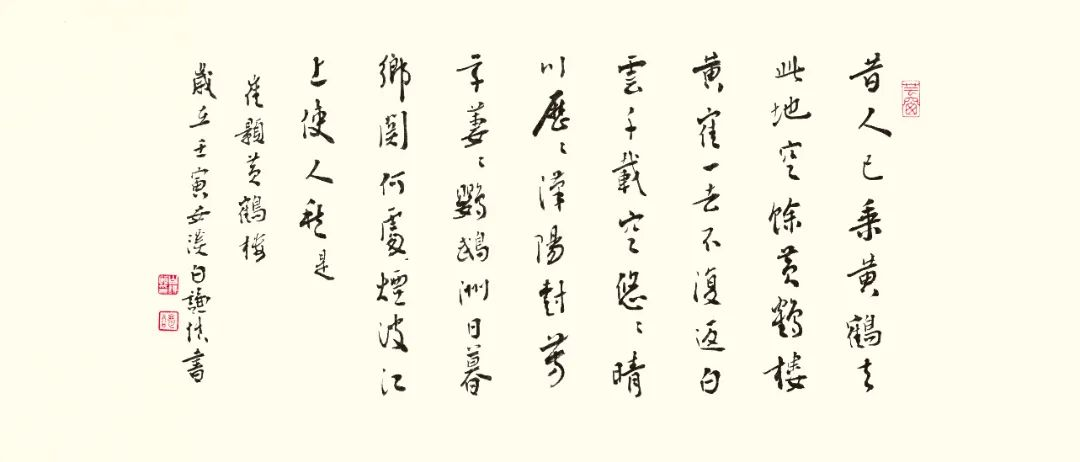 昔人已乘黄鶴去
此地空餘黄鶴楼
黄隺一去不復返白
雲千載空悠〻晴
川歷〻漢陽樹芳
草萋〻鸚鵡洲日暮
鄉關何處煙波江
上使人愁是
崔顥黄鶴楼
歲在壬寅安溪白謙慎書